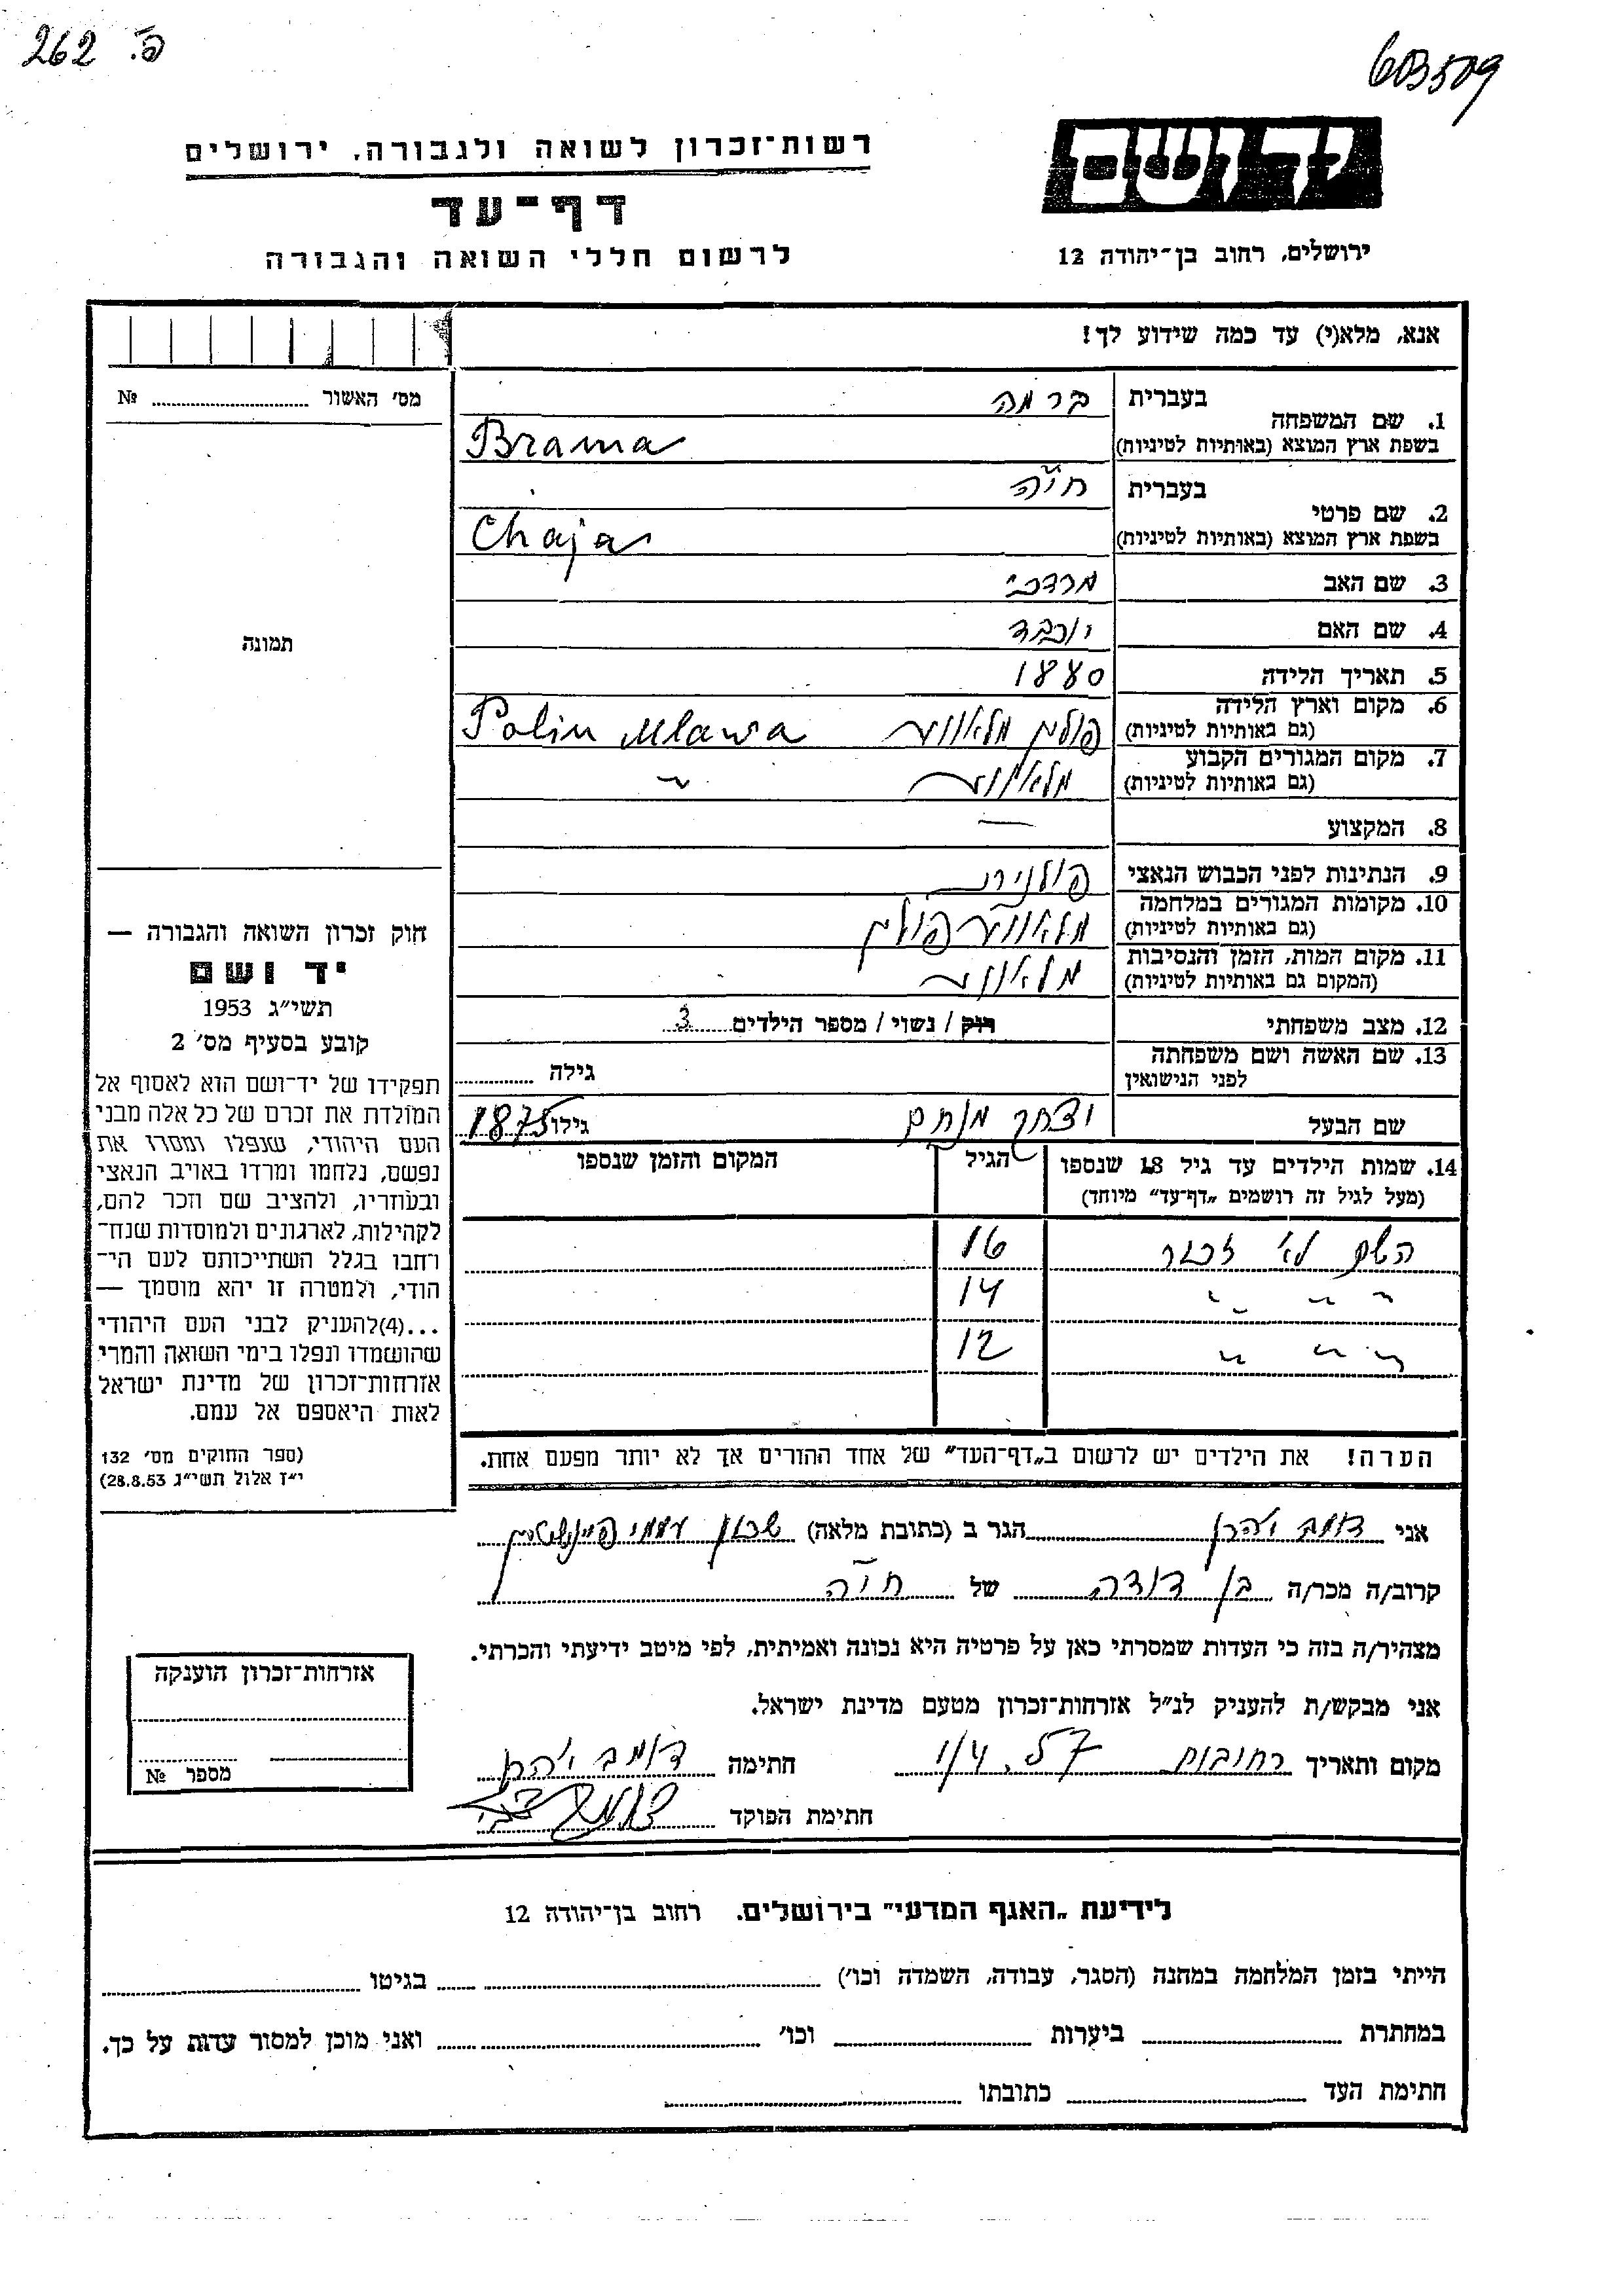 262 .פ
603509
רשות־זכרון לשואה ולגבורה, ירושלים
דף־עד
לרשום חללי השואה והגבורה
יד ושם
ירושלים, רחוב בן־יהודה 12
אנא, מלא(י) עד כמה שידוע לך!
מס' האשור № ........
תמונה
1. שם המשפחה
בעברית ברמה
בשפת ארץ המוצא (באותיות לטיניות) Brama
2. שם פרטי
בעברית חיה
בשפת ארץ המוצא (באותיות לטיניות) Chaja
3. שם האב מרדכי
4. שם האם יוכבד
5. תאריך הלידה 1880
6. מקום וארץ הלידה (גם באותיות לטיניות) פולין מלאווה Polin Mlawa
7. מקום המגורים הקבוע (גם באותיות לטיניות) מלאווה "
8. המקצוע —
9. הנתינות לפני הכבוש הנאצי פולנית
10. מקומות המגורים במלחמה (גם באותיות לטיניות) מלאווה פולין
11. מקום המות, הזמן והנסיבות (המקום גם באותיות לטיניות) מלאווה
12. מצב משפחתי רווק / נשוי / מספר הילדים 3
13. שם האשה ושם משפחתה לפני הנישואין גילה ........
שם הבעל יצחק מנחם גילו 1875
14. שמות הילדים עד גיל 18 שנספו הגיל המקום והזמן שנספו
(מעל לגיל זה רושמים „דף־עד" מיוחד)
השם לא זכור 16
" " " 14
" " " 12
הערה! את הילדים יש לרשום ב„דף־העד" של אחד ההורים אך לא יותר מפעם אחת.
חוק זכרון השואה והגבורה —
יד ושם
תשי"ג 1953
קובע בסעיף מס' 2
תפקידו של יד־ושם הוא לאסוף אל
המולדת את זכרם של כל אלה מבני
העם היהודי, שנפלו ומסרו את
נפשם, נלחמו ומרדו באויב הנאצי
ובעוזריו, ולהציב שם וזכר להם,
לקהילות, לארגונים ולמוסדות שנח־
רחבו בגלל השתייכותם לעם הי־
הודי, ולמטרה זו יהא מוסמך —
...(4)להעניק לבני העם היהודי
שהושמדו ונפלו בימי השואה והמרי
אזרחות־זכרון של מדינת ישראל
לאות היאספם אל עמם.
(ספר החוקים מס' 132
י"ז אלול תשי"ג 28.8.53)
אני דומב הגר ב (כתובת מלאה) שכון עממי
קרוב/ה מכר/ה בן דודה של חיה
מצהיר/ה בזה כי העדות שמסרתי כאן על פרטיה היא נכונה ואמיתית, לפי מיטב ידיעתי והכרתי.
אני מבקש/ת להעניק לנ"ל אזרחות־זכרון מטעם מדינת ישראל.
מקום ותאריך רחובות 1/4. 57 חתימה דומב
חתימת הפוקד
אזרחות־זכרון הוענקה
מספר №
לידיעת „האגף המדעי" בירושלים. רחוב בן־יהודה 12
הייתי בזמן המלחמה במחנה (הסגר, עבודה, השמדה וכו') ........ בגיטו ........
במחתרת ........ ביערות ........ וכו' ........ ואני מוכן למסור עדות על כך.
חתימת העד ........ כתובתו ........